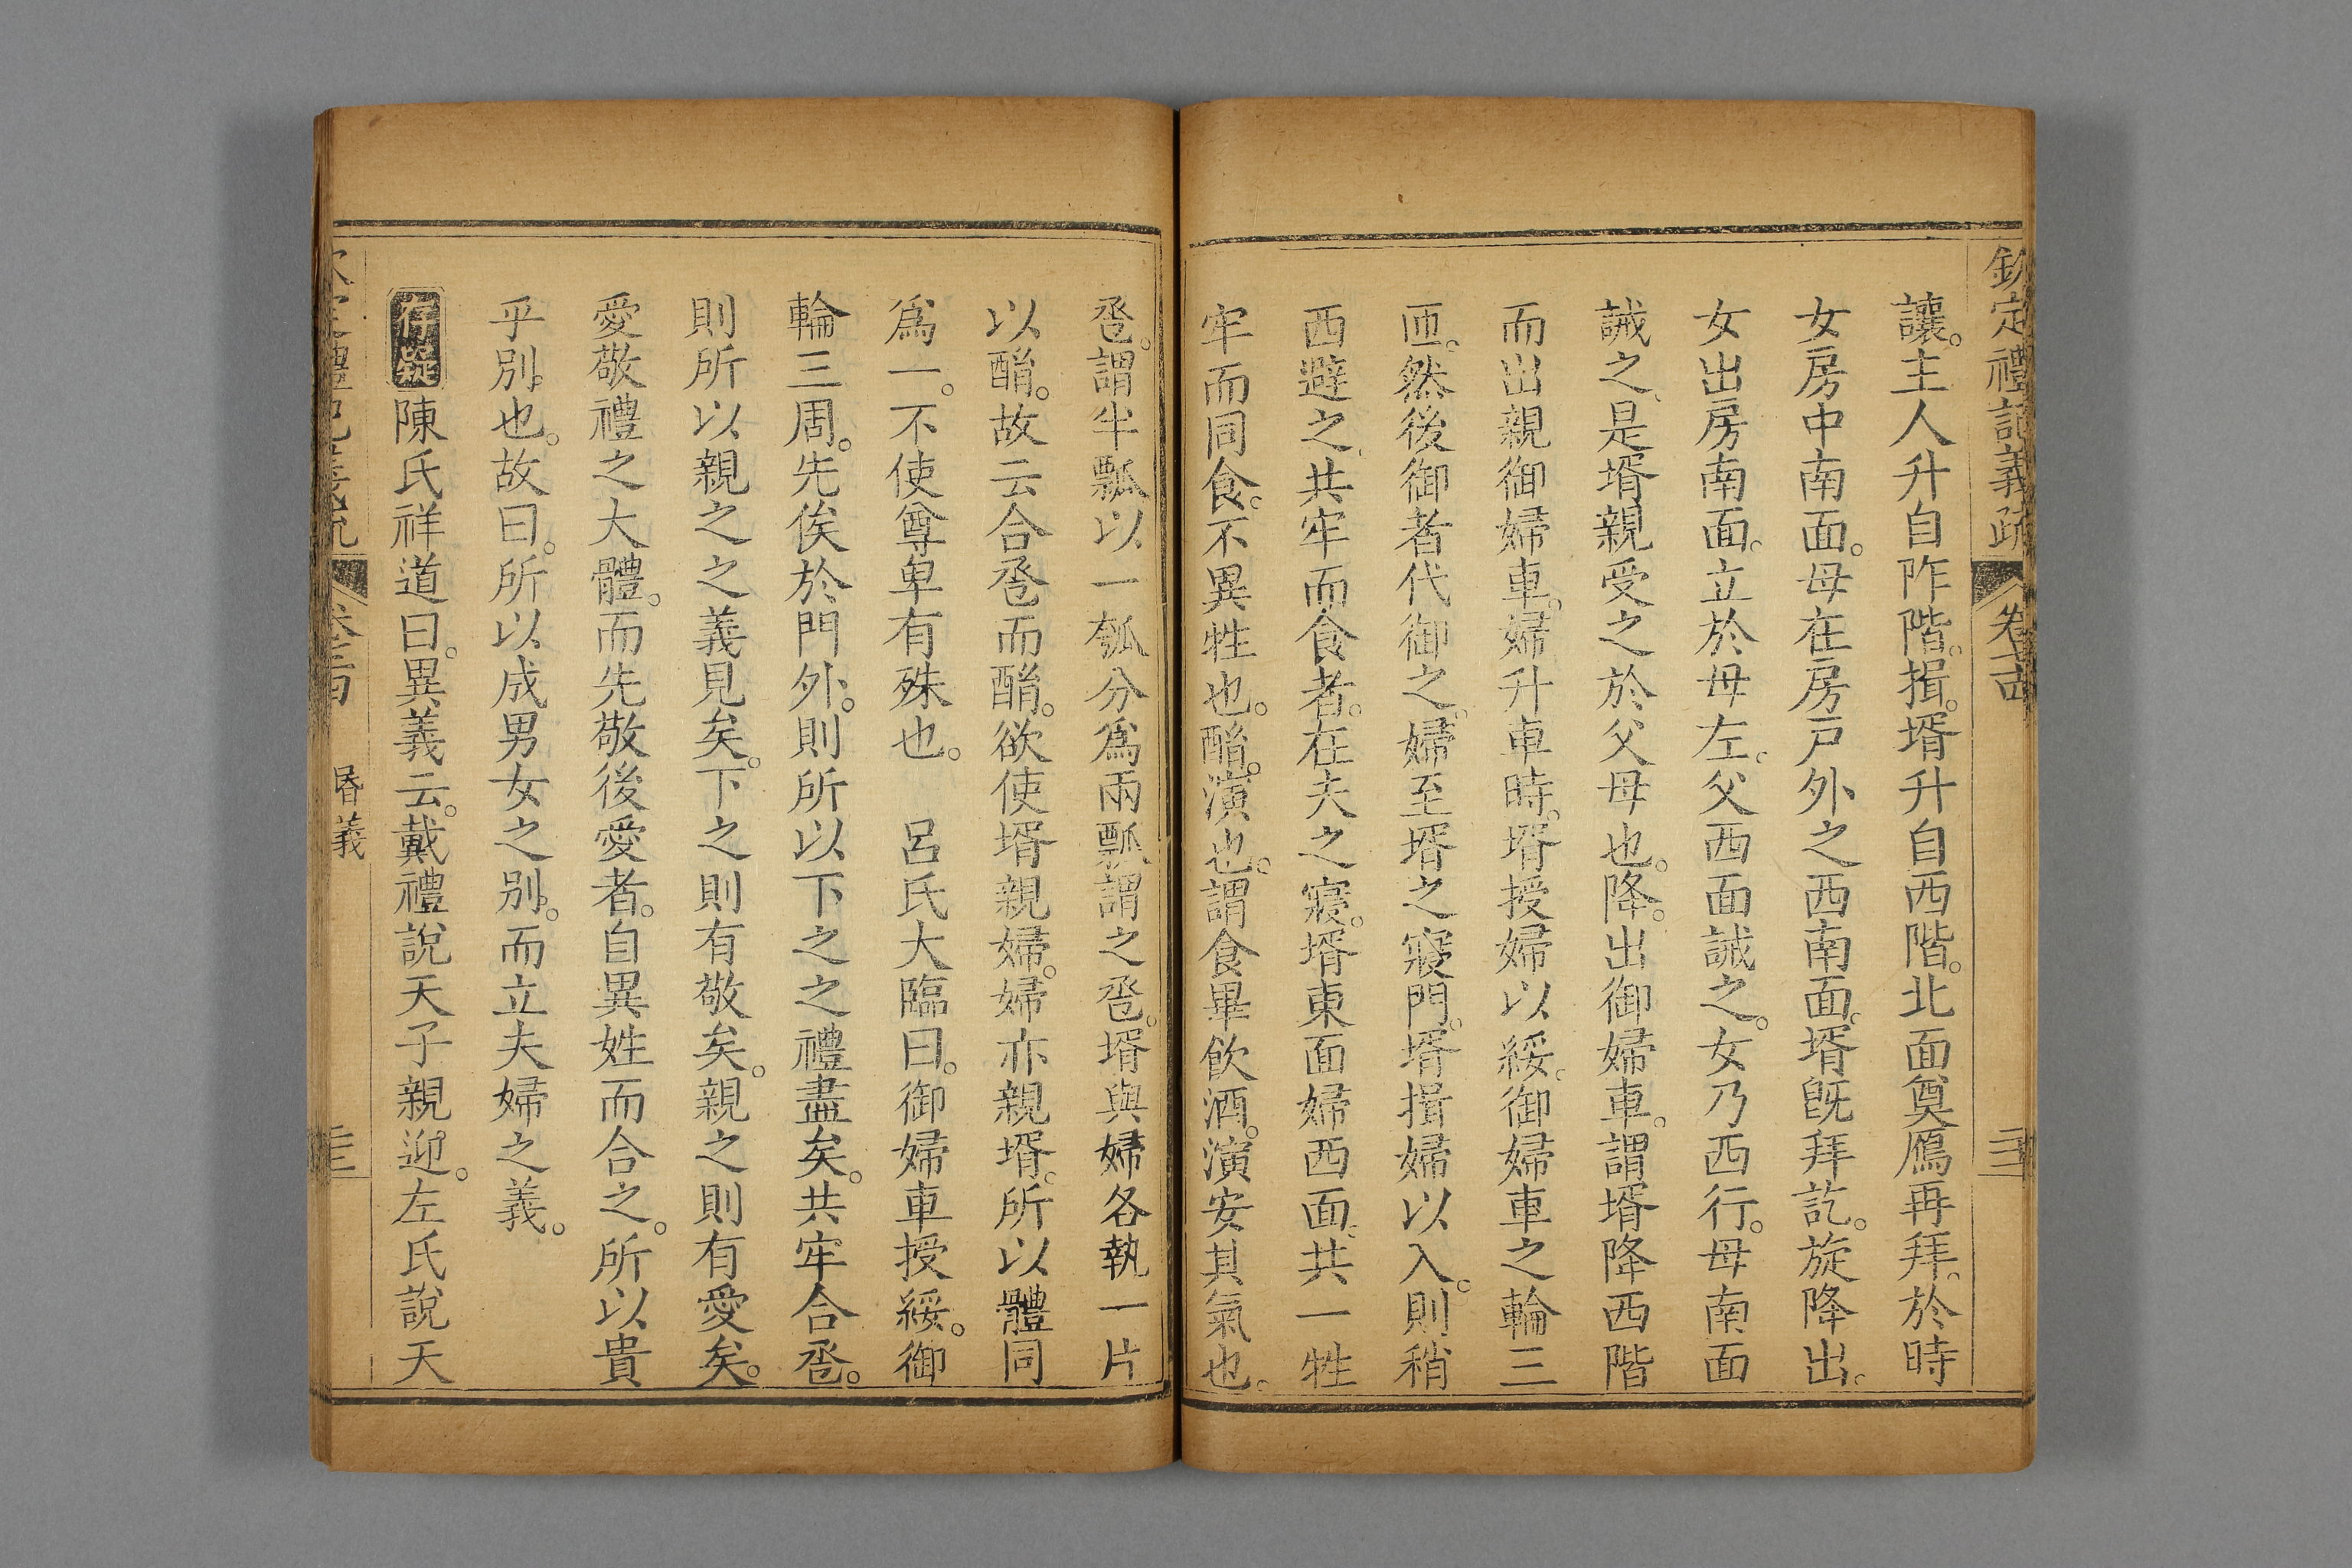 欽定禮記義疏 卷 三
讓。主人升自阼階。揖。壻升自西階。北面奠鴈再拜。於時
女房中南面。母在房戶外之西南面。壻旣拜訖。旋降出。
女出房南面。立於母左。父西面誡之。女乃西行。母南面
誡之。是壻親受之於父母也。降。出御婦車。謂壻降西階
而出親御婦車。婦升車時。壻授婦以綏。御婦車之輪三
匝。然後御者代御之。婦至壻之寢門。壻揖婦以入。則稍
西避之。共牢而食者。在夫之寢。壻東面婦西面。共一牲
牢而同食。不異牲也。酳。演也。謂食畢飲酒。演安其氣也。
卺。謂半瓢以一瓠分爲兩瓢謂之卺。壻與婦各執一片
以酳。故云合卺而酳。欲使壻親婦。婦亦親壻。所以體同
爲一。不使尊卑有殊也。 呂氏大臨曰。御婦車授綏。御
輪三周。先俟於門外。則所以下之之禮盡矣。共牢合卺。
則所以親之之義見矣。下之則有敬矣。親之則有愛矣。
愛敬禮之大體。而先敬後愛者。自異姓而合之。所以貴
乎別也。故曰。所以成男女之別。而立夫婦之義。
存疑 陳氏祥道曰。異義云。戴禮說天子親迎。左氏說天
禮記義疏 昏義